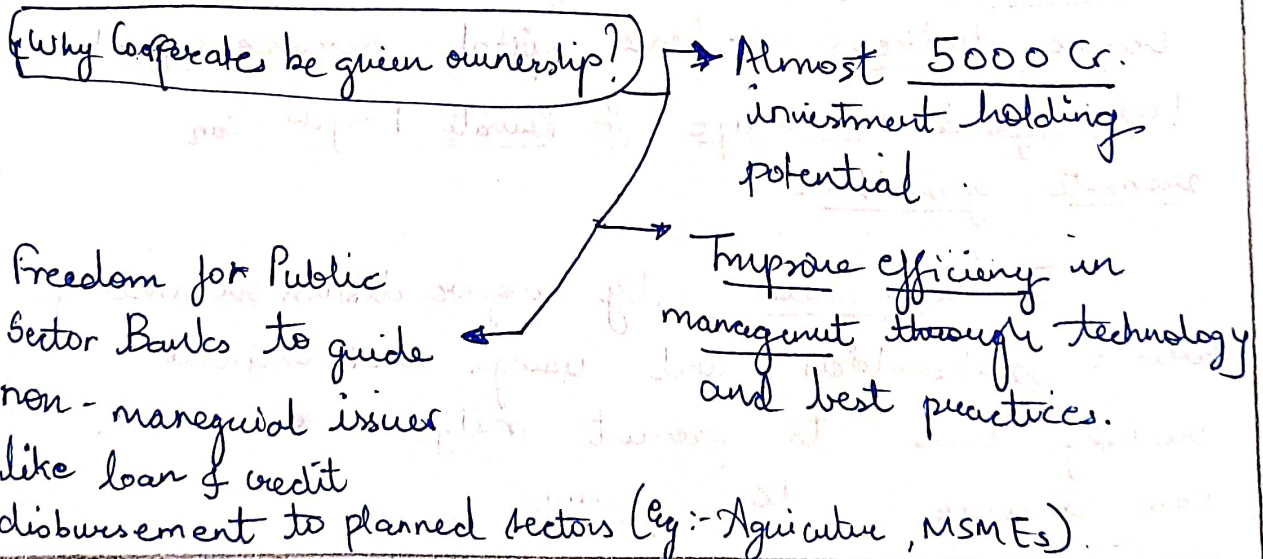 Why Corporates be given ownership?
Almost 5000 Cr.
investment holding
potential.
Improve efficiency in
management through technology
and best practices.
Freedom for Public
Sector Banks to guide
non-managerial issues
like loan & credit
disbursement to planned sectors (eg:- Agriculture, MSMEs).